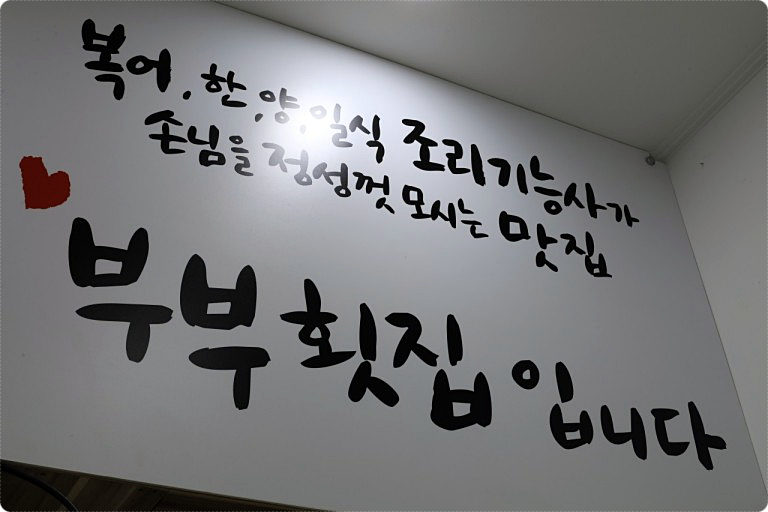 복어, 한, 양, 일식 조리기능사가
손님을 정성껏 모시는 맛집
부부횟집입니다